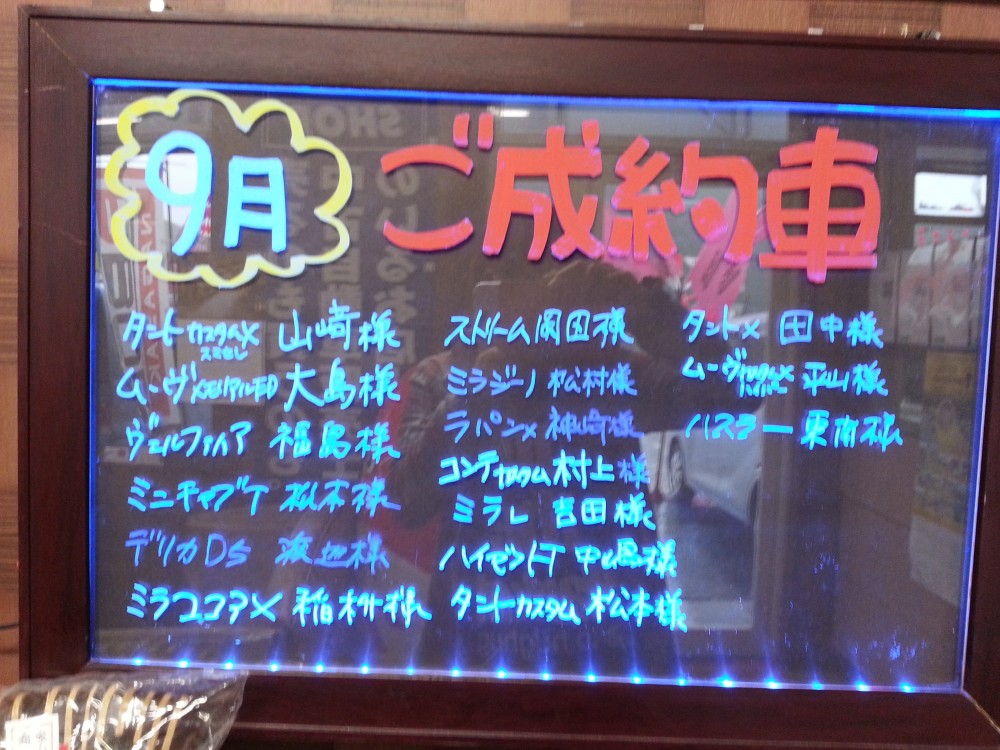 9月 ご成約車
タントカスタムX 山崎様
ムーヴ 大島様
ヴェルファイア 福島様
ミニキャブT 松本様
デリカD5 渡辺様
ミラココアX 稲村様
ストリーム 岡田様
ミラジーノ 松村様
ラパンX 神崎様
コンテカスタム 村上様
ミラL 吉田様
ハイゼットT 中嶋様
タントカスタム 松本様
タントX 田中様
ムーヴカスタムX 平山様
ハスラー 様